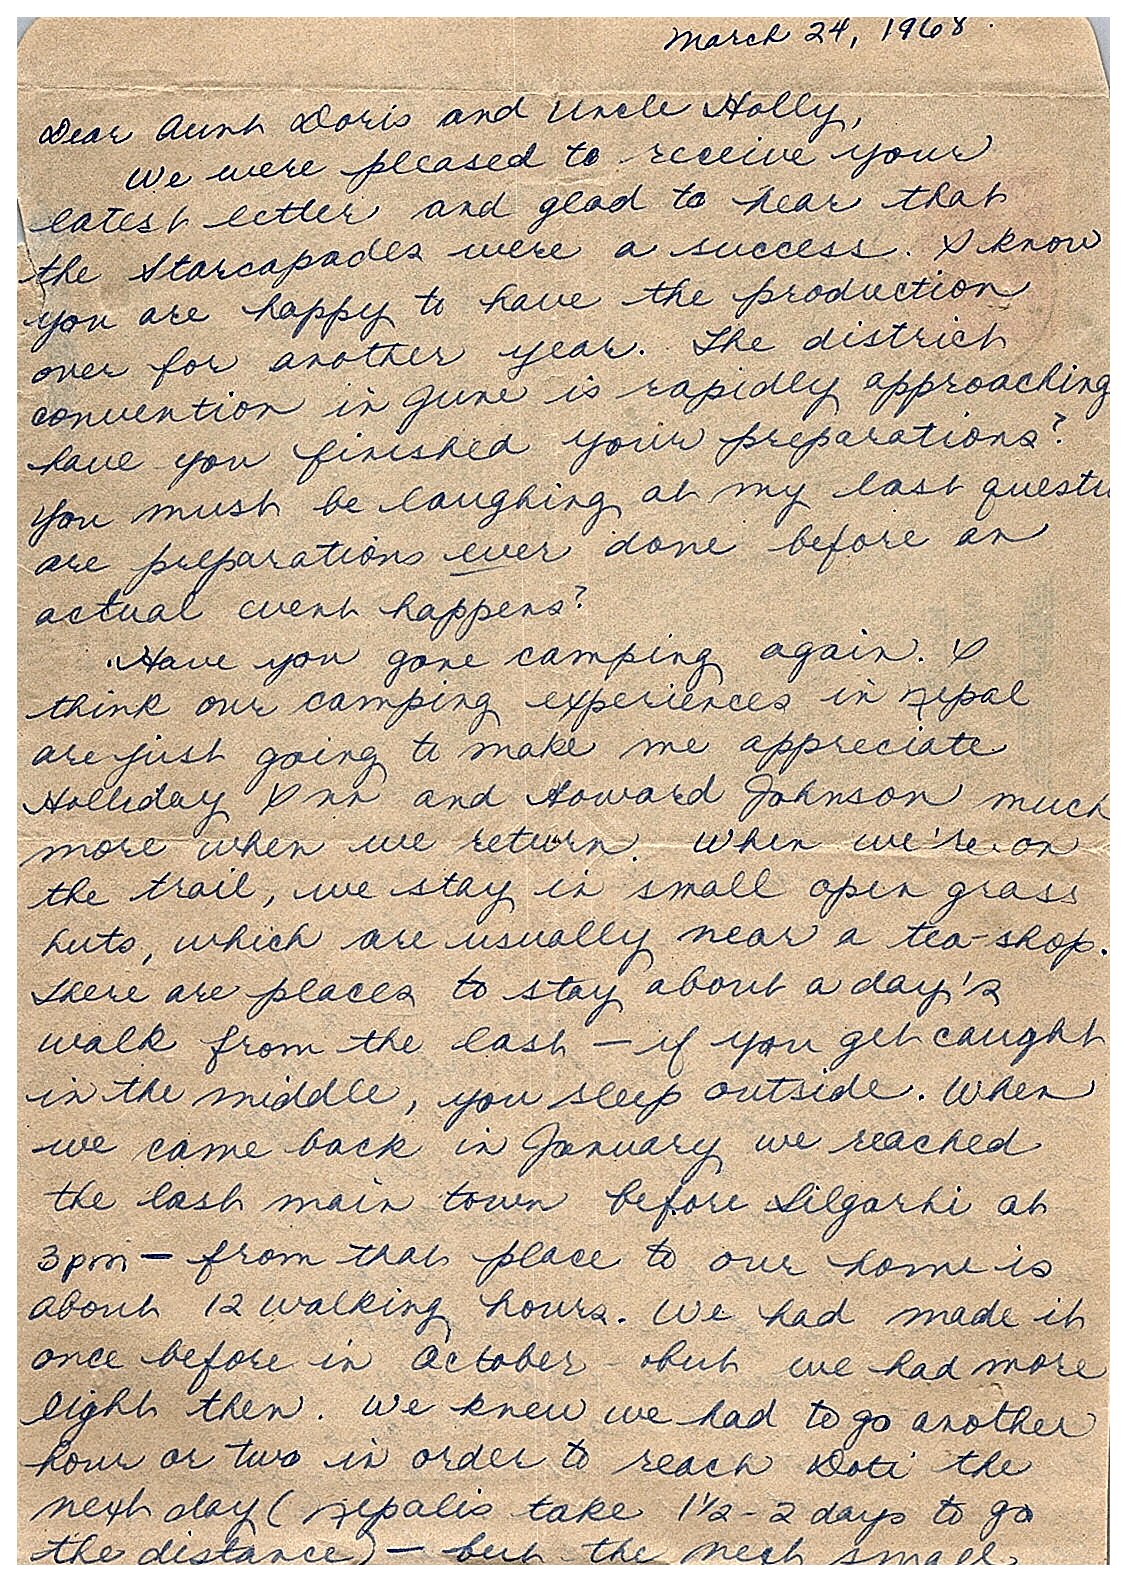 March 24, 1968.
Dear Aunt Doris and Uncle Holly,
We were pleased to receive your
latest letter and glad to hear that
the Starcapades were a success. I know
you are happy to have the production
over for another year. The district
convention in June is rapidly approaching
have you finished your preparations?
You must be laughing at my last
are preparations ever done before an
actual event happens?
Have you gone camping again. I
think our camping experiences in Nepal
are just going to make me appreciate
Holliday Inn and Howard Johnson much
more when we return. When we're on
the trail, we stay in small open grass
huts, which are usually near a tea-shop.
There are places to stay about a day's
walk from the last – if you get caught
in the middle, you sleep outside. When
we came back in January we reached
the last main town before Silgarhi at
3 pm – from that place to our home is
about 12 walking hours. We had made it
once before in October but we had more
light then. We knew we had to go another
hour or two in order to reach Doti the
next day (Nepalis take 1½ - 2 days to go
the distance) – but the next small